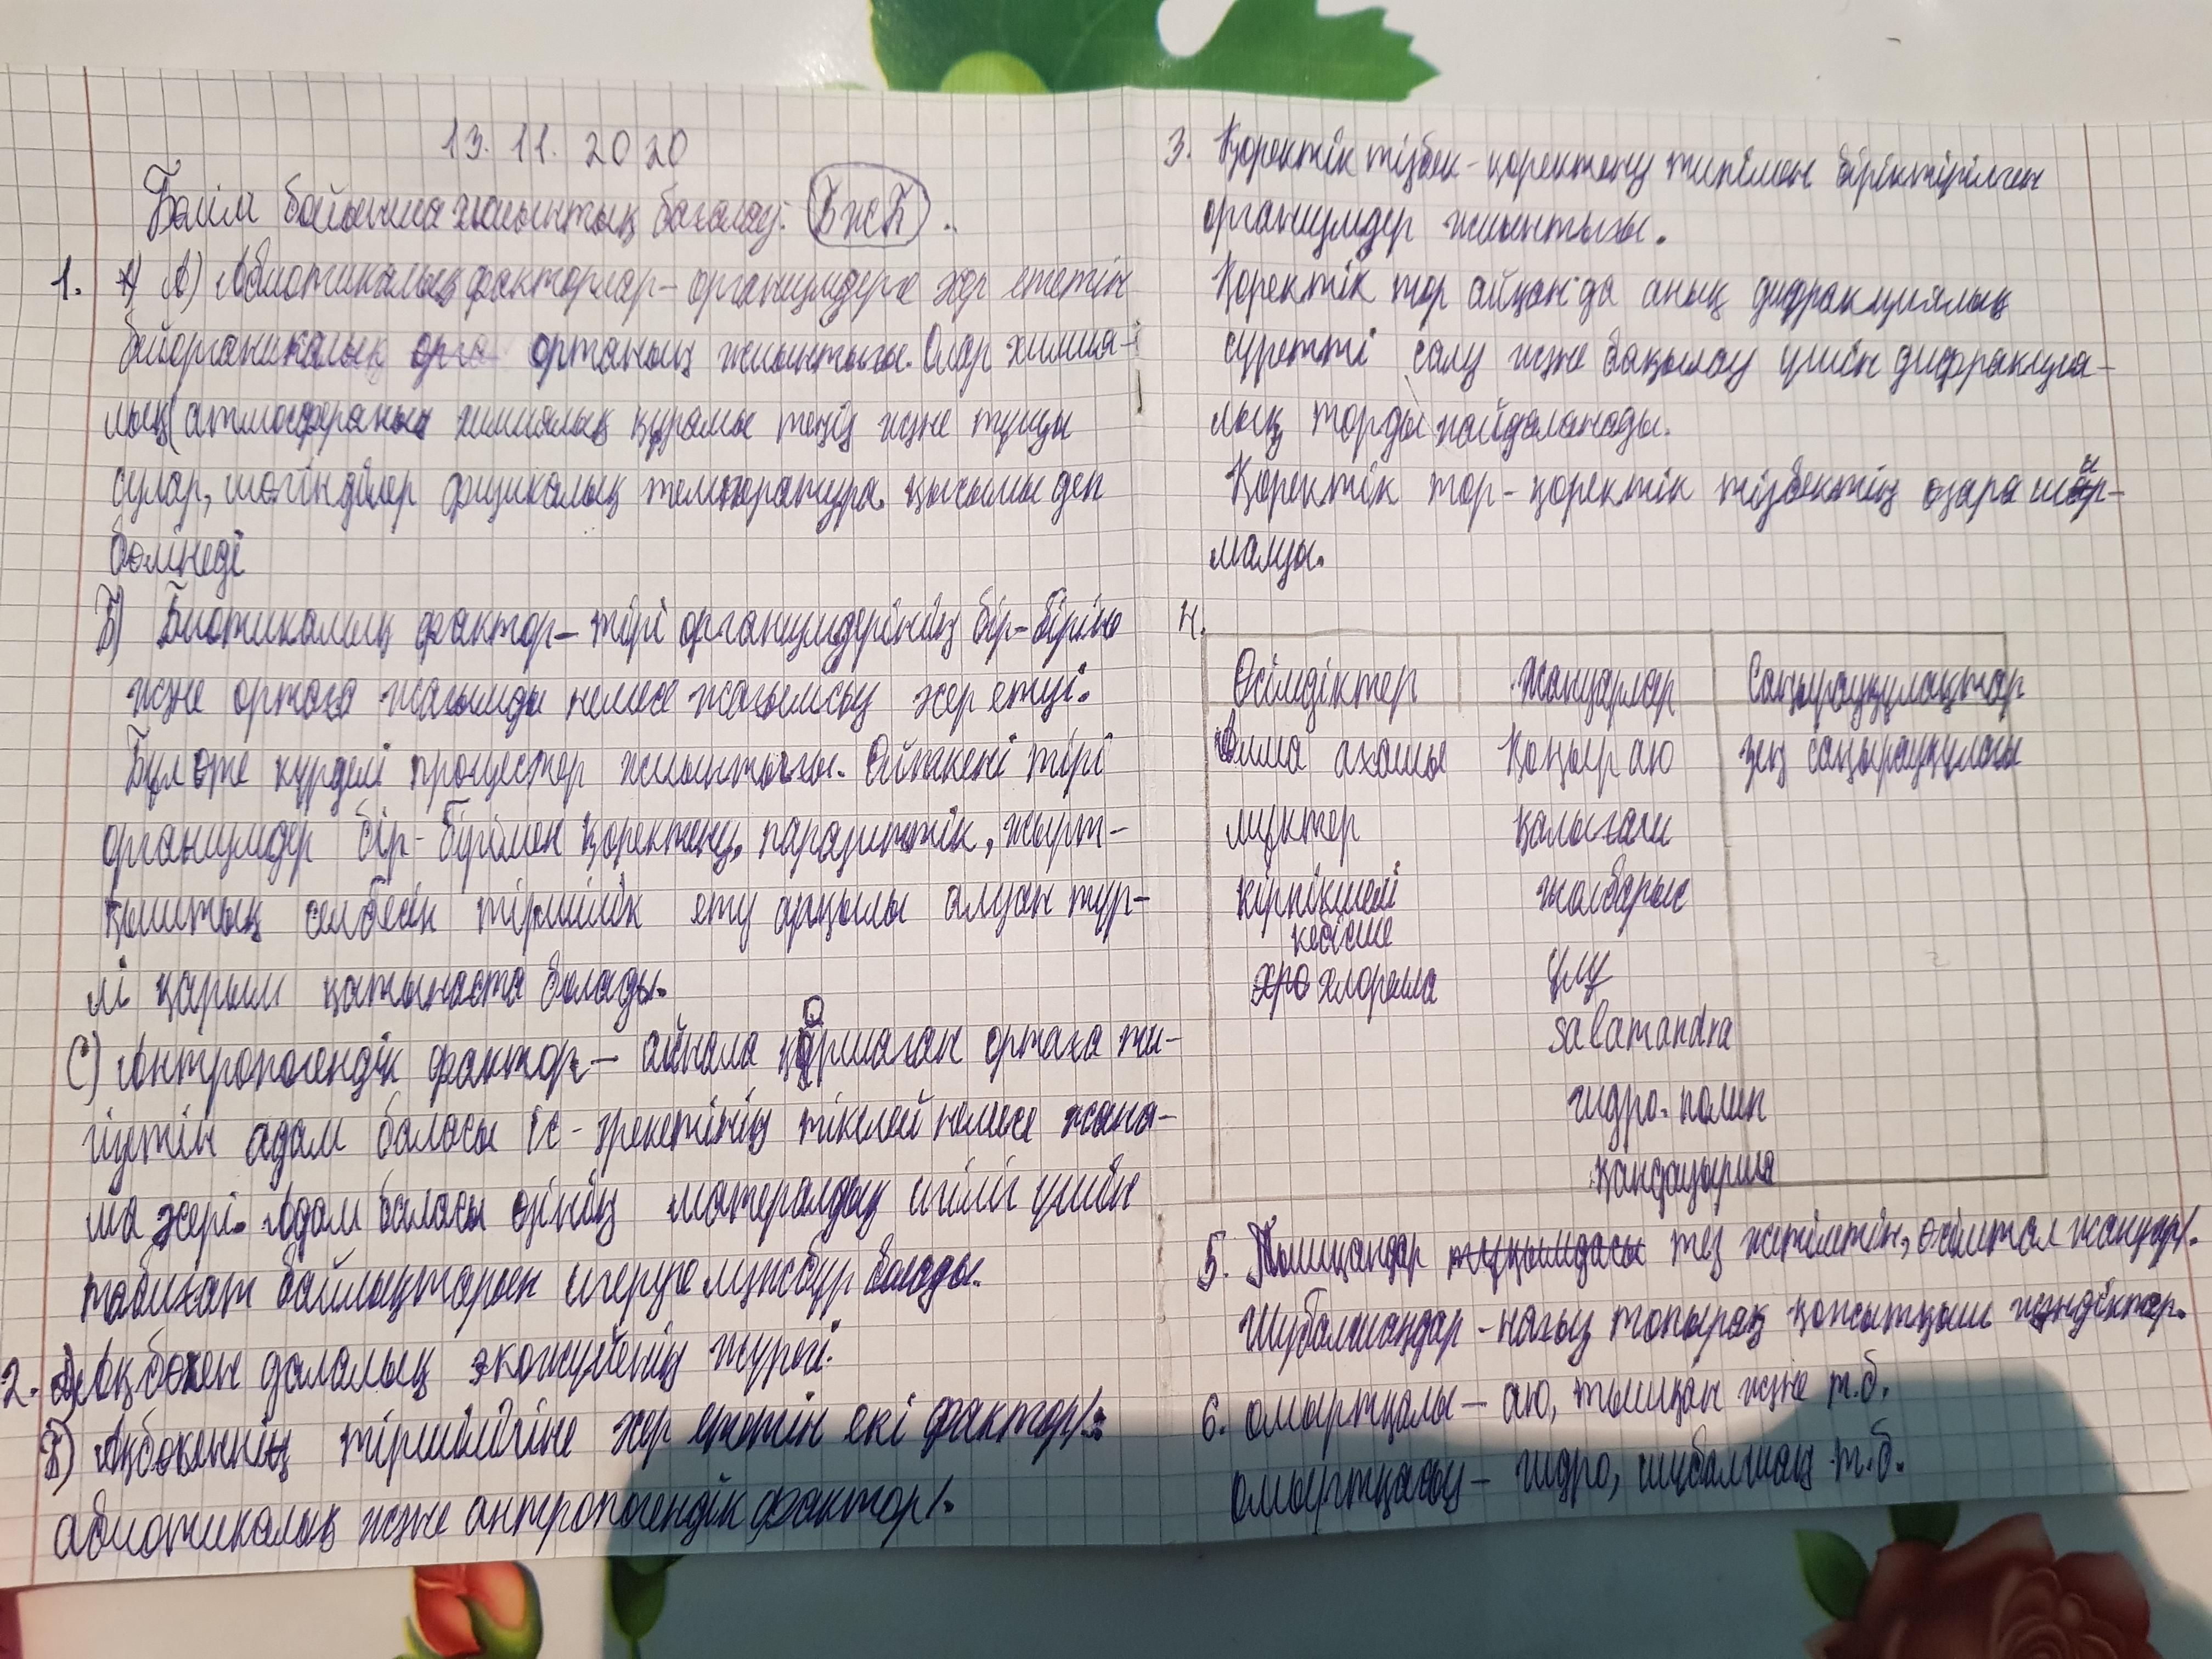 13. 11. 2020
Бөлім бойынша жиынтық бағалау. БЖБ.
1. А) Абиотикалық факторлар - организмдерге әсер ететін
бейорганикалық ортаның жиынтығы. Олар химия-
лық (атмосфераның химиялық құрамы теңіз және тұщы
сулар, шөгінділер физикалық температура. қысымы деп
бөлінеді
Б) Биотикалық фактор - тірі организмдерінің бір-біріне
және ортаға жағымды немесе жағымсыз әсер етуі.
Бұл өте күрделі процестер жиынтығы. Өйткені тірі
организмдер бір-бірімен қоректену, паразиттік, жырт-
қыштық селбесін тіршілік ету арқылы алуан түр-
лі қарым қатынаста болады.
С) Антропогендік фактор - айнала қоршаған ортаға ти-
гізетін адам баласы іс-әрекетінің тікелей немесе жана-
ма әсері. Адам баласы өзінің матералдық игілігі үшін
табиғат байлықтарын игеруге мәжбүр болады.
2. А) Ақбөкен далалық экожүйенің жүргі.
Б) Ақбөкеннің тіршілігіне әсер ететін екі фактор/:
абиотикалық және антропогендік фактор/.
3. Қоректік тізбек - қоректену типімен біріктірілген
организмдер жиынтығы.
Қоректік тор айқанда анық дифракциялық
суретті салу және бақылау үшін дифракция-
лық торды пайдаланады.
Қоректік тор - қоректік тізбектің өзара шир-
малуы.
4.
Өсімдіктер Жануарлар Саңырауқұлақтар
Алма ағашы Қоңыр аю зең саңырауқұлағы
мүктер қарлығаш
кірпікшелі жолбарыс
кебісше
хлорелла құ
salamandra
гидро-полип
қандауырша
5. Тышқандар тұқымдасы тез жетілетін, өсімтал жануар/.
Шұбалшаңдар - нағыз топырақ қопсытқыш жәндіктер.
6. омыртқалы - аю, тышқан және т.б.
омыртқасыз - гидра, шұбалшаң т.б.